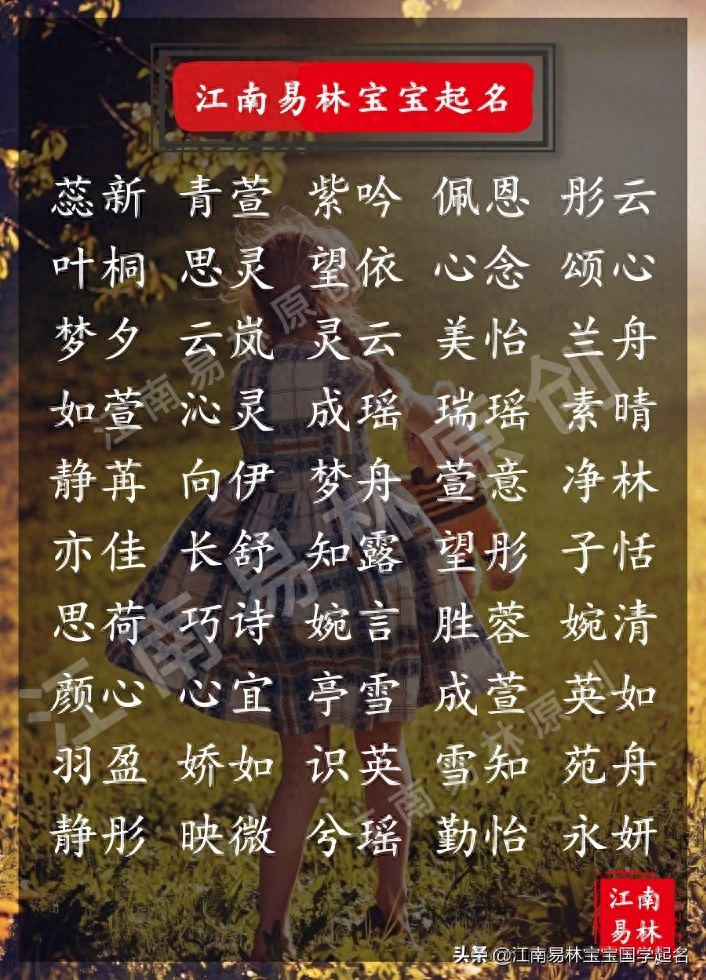 江南易林宝宝起名
蕊新 青萱 紫吟 佩恩 彤云
叶桐 思灵 望依 心念 颂心
梦夕 云岚 灵云 美怡 兰舟
如萱 沁灵 成瑶 瑞瑶 素晴
静苒 向伊 梦舟 萱意 净林
亦佳 长舒 知露 望彤 子恬
思荷 巧诗 婉言 胜蓉 婉清
颜心 心宜 亭雪 成萱 英如
羽盈 娇如 识英 雪知 苑舟
静彤 映微 兮瑶 勤怡 永妍
江南易林原创
江南易林原创
江南易林原创
江南
易林
头条 @江南易林宝宝国学起名